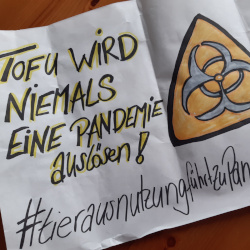 TOFU WIRD
NIEMALS
EINE PANDEMIE
auslösen!
#tierausnutzungführtzuPan